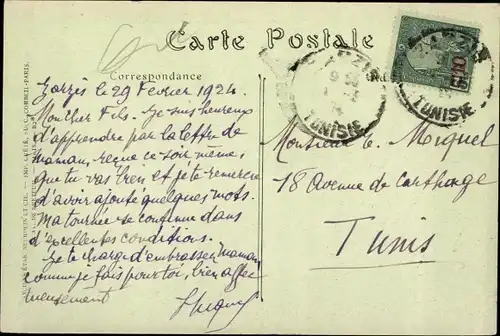 Carte Postale
Correspondance
Zarzis le 29 Février 1924.
Mon cher Fils. Je suis heureux
d'apprendre par la lettre de
maman, reçue ce soir même,
que tu vas bien et je te remercie
d'avoir ajouté quelques mots.
Ma tournée se continue dans
d'excellentes conditions.
Je te charge d'embrasser maman
comme je fais pour toi, bien affec
tueusement
HMiquel
Monsieur C. Miquel
18 Avenue de Carthage
Tunis
ZARZIS
TUNISIE
ZARZIS
TUNISIE
10